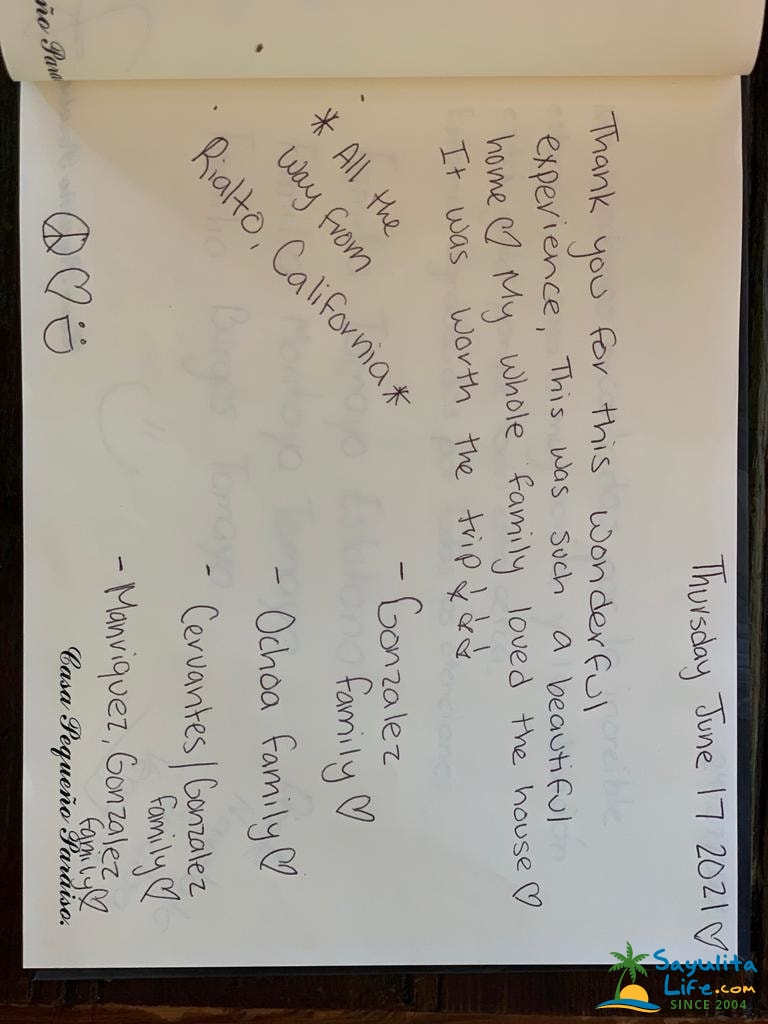 Thursday June 17 2021 ♡
Thank you for this wonderful
experience, This was such a beautiful
home ♡ My whole family loved the house ♡
It was worth the trip!!!
* All the
way from
Rialto, California *
- Gonzalez
family ♡
- Ochoa family ♡
- Cervantes/Gonzalez
family ♡
- Manriquez, Gonzalez
family ♡
Casa Pequeño Paraiso.
ño Para
Sayulita
Life.com
SINCE 2004